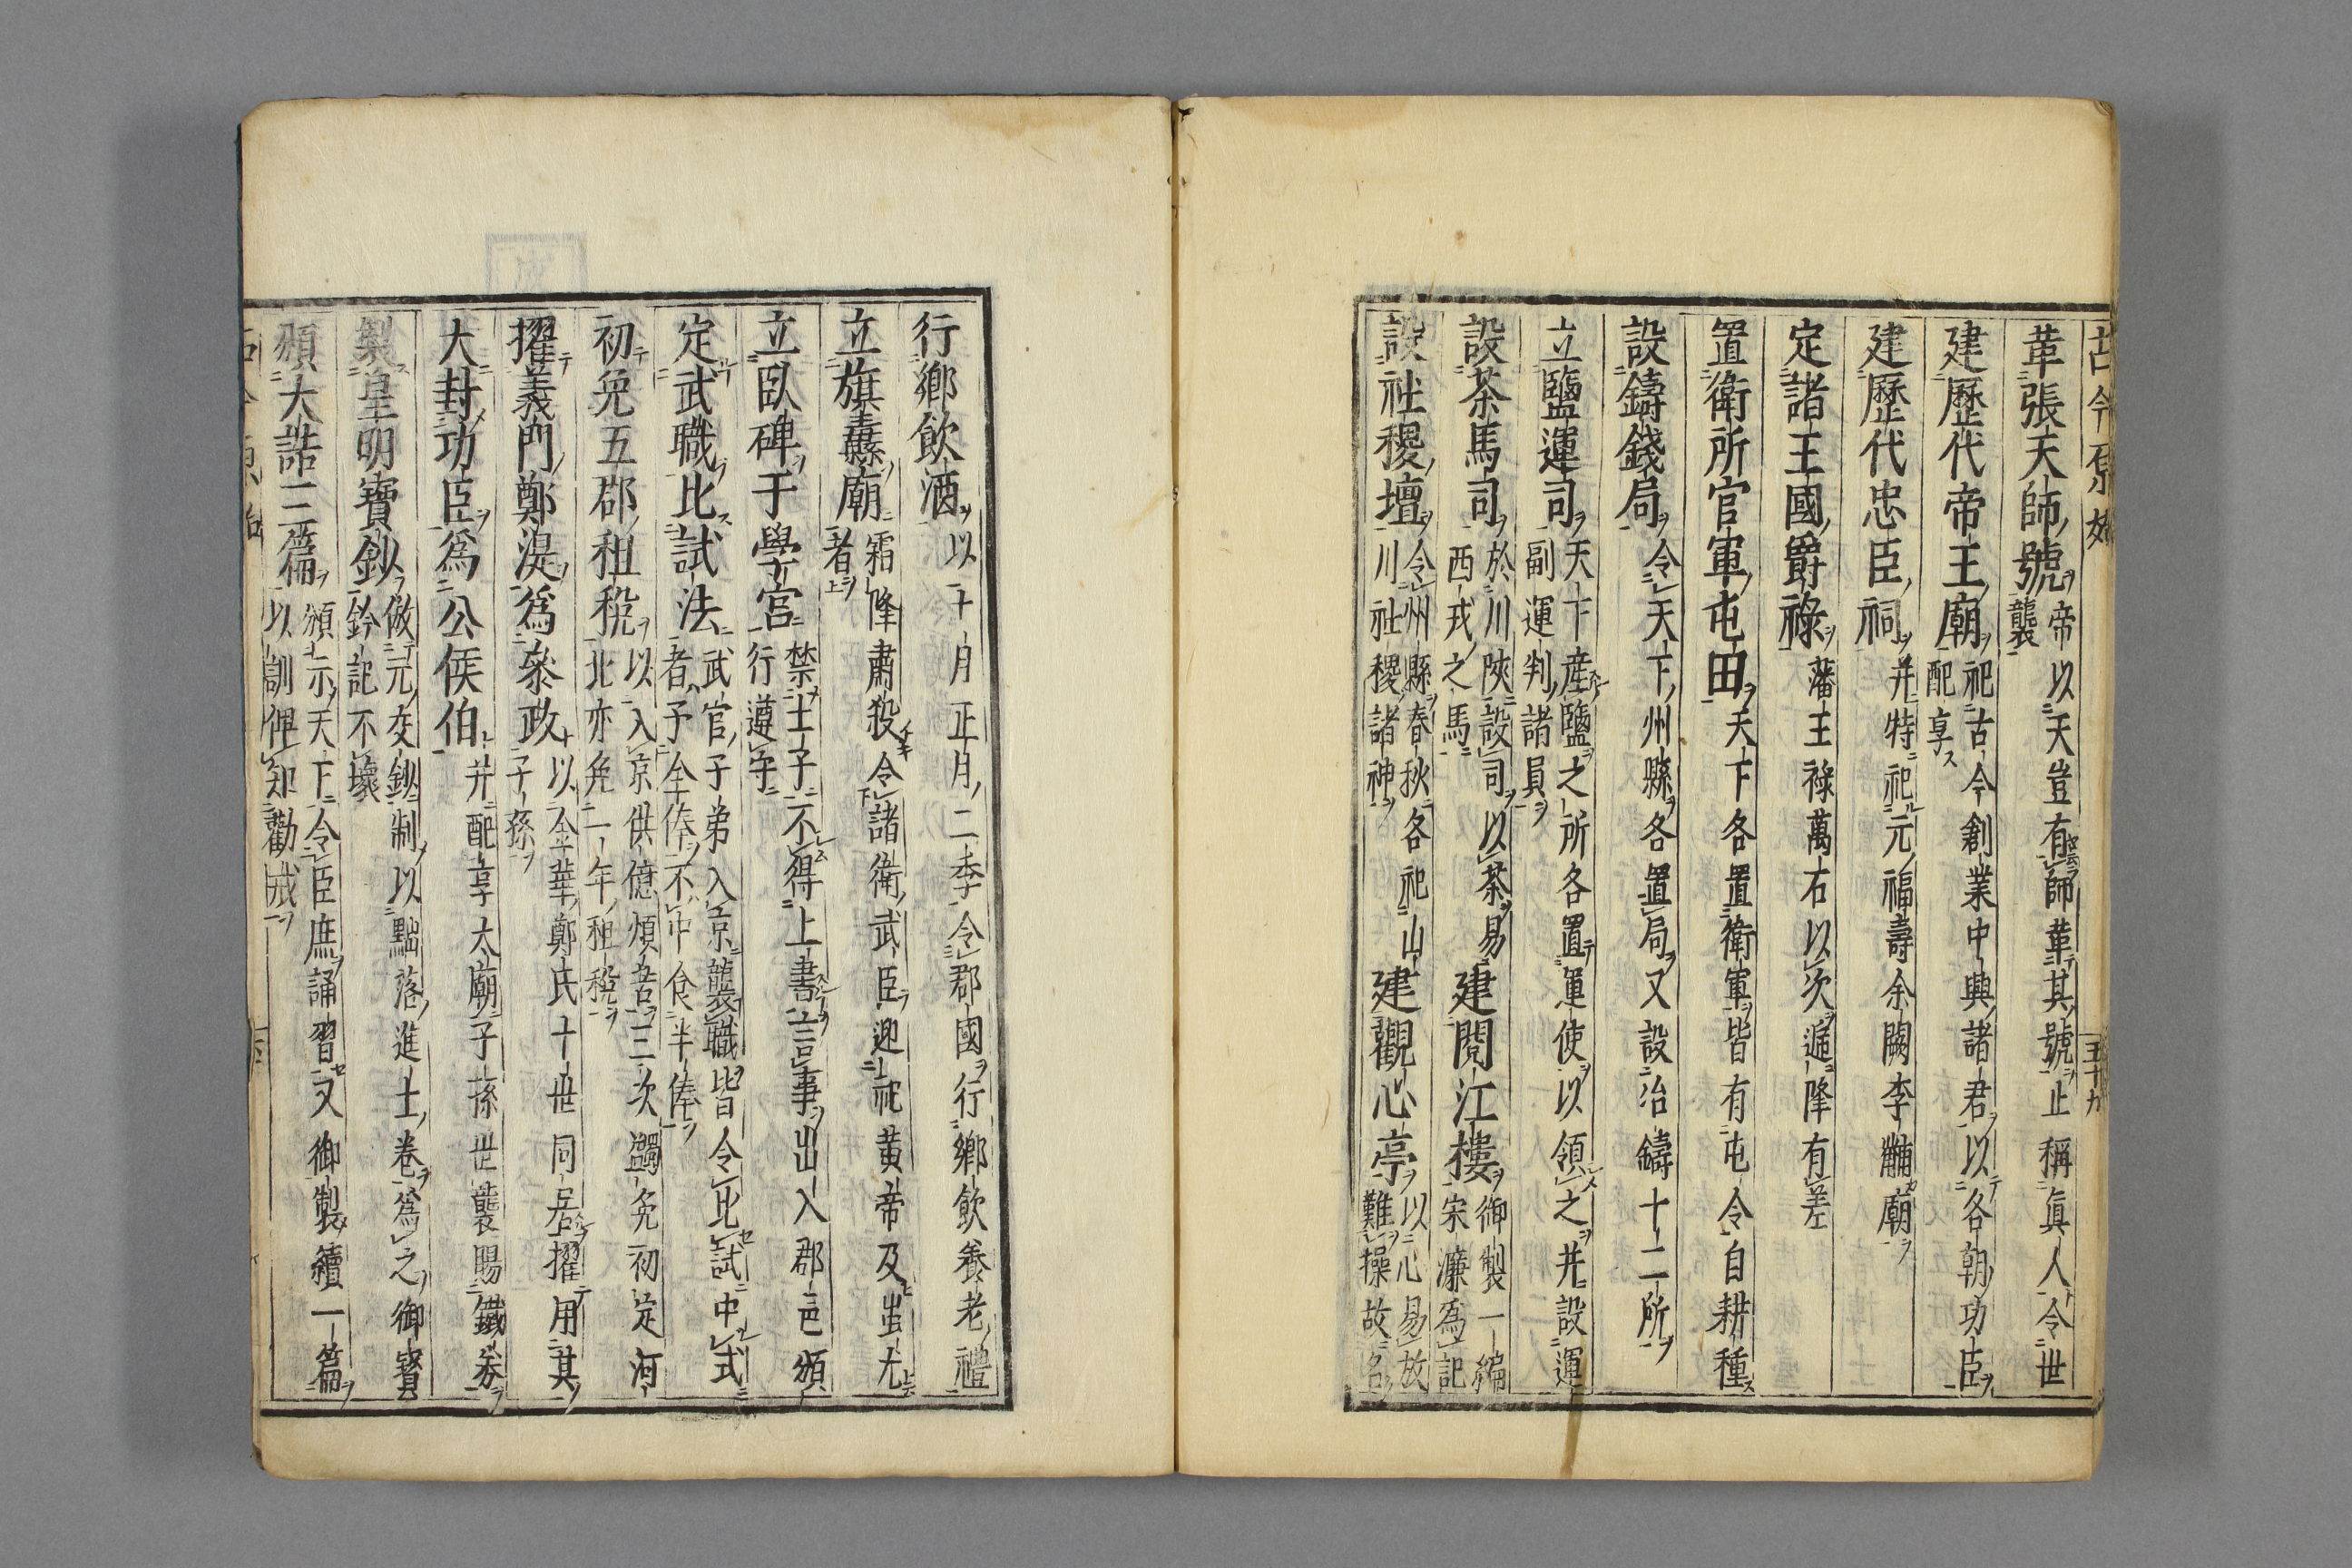 古今原始
五十九
革張天師號帝以天豈有師革其號止稱眞人令世
襲
建歷代帝王廟祀古今創業中興諸君以各朝功臣
配享
建歷代忠臣祠并特祀元福壽余闕李黼廟
定諸王國爵祿藩王祿萬石以次遞降有差
置衛所官軍屯田天下各置衛軍皆有屯令自耕種
設鑄錢局令天下州縣各置局又設冶鑄十二所
立鹽運司天下産鹽之所各置運使以領之并設運
副運判諸員
設茶馬司於川陝設司以茶易
西戎之馬
建閱江樓御製一編
宋濂爲記
設社稷壇令州縣春秋各祀山
川社稷諸神
建觀心亭以心易放
難操故名
行鄉飲酒以十月正月二季令郡國行鄉飲養老禮
立旗纛廟霜降肅殺令諸衛武臣迎祀黄帝及蚩尤
者
立臥碑于學宮禁士子不得上書言事出入郡邑頒
行遵守
定武職比試法武官子弟入京襲職皆令比試中式
者予全俸不中食半俸
初免五郡租稅以入京供億煩苦三次蠲免初定河
北亦免一年租稅
擢義門鄭湜爲叅政以金華鄭氏十世同居擢用其
子孫
大封功臣爲公侯伯并配享太廟子孫世襲賜鐵券
製皇明寶鈔倣元交鈔制以黜落進士卷爲之御寶
鈐記不壞
頒大誥三篇頒示天下令臣庶誦習又御製續一篇
以訓俾知勸戒
古今原始